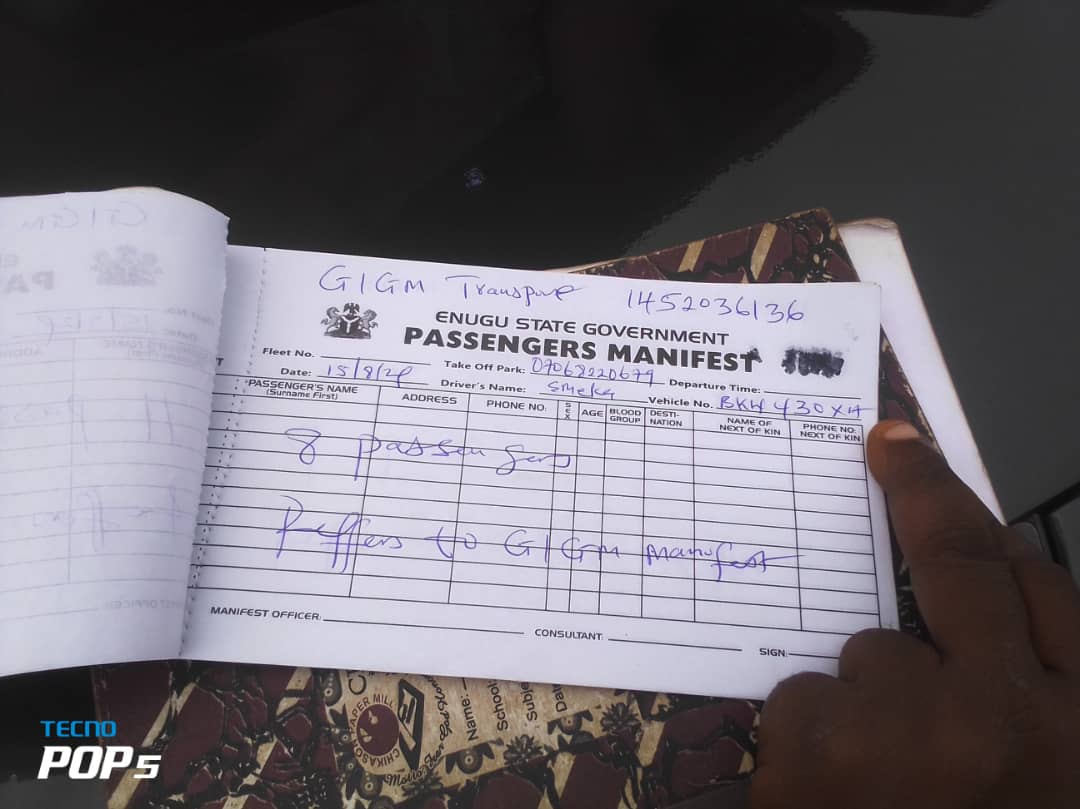 GIGM Transport 1452036136
ENUGU STATE GOVERNMENT
PASSENGERS MANIFEST
Fleet No. Take Off Park: 07068220679 Departure Time:
Date: 15/8/24 Driver's Name: Emeka Vehicle No. BKW 430 XH
PASSENGER'S NAME (Surname First) ADDRESS PHONE NO: SEX AGE BLOOD GROUP DESTI-NATION NAME OF NEXT OF KIN PHONE NO: NEXT OF KIN
8 passengers
Reffers to GIGM manifest
MANIFEST OFFICER: CONSULTANT: SIGN:
CHIKASON PAPER MILL
Name:
School
Subje
Date
TECNO
POP 5